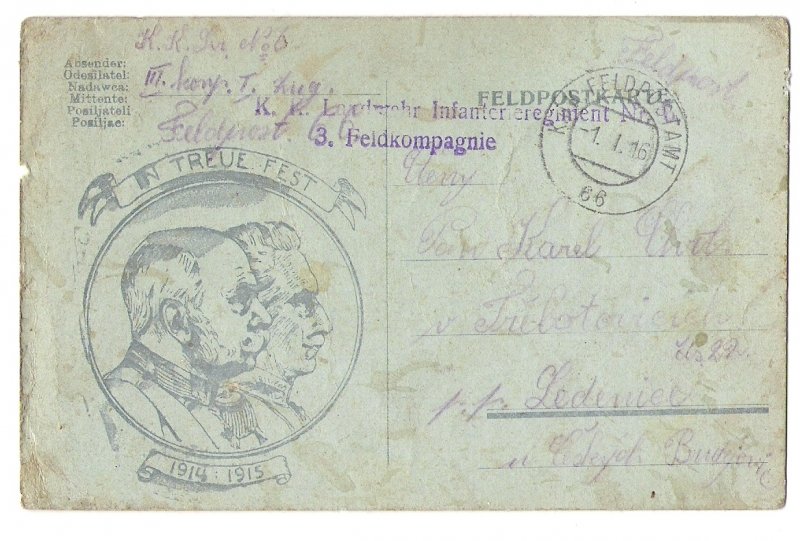 K. K. Lir No 6
III. komp. I. zug.
Feldpost 66
Absender:
Odesílatel:
Nadawca:
Mittente:
Pošiljatelj
Posiljac:
Feldpost
FELDPOSTKARTE
K. K. Landwehr Infanterieregiment Nr.
3. Feldkompagnie
K. u. K. FELDPOSTAMT
-1. I. 16
66
IN TREUE FEST
1914 · 1915
Ctěný
Pan Karel
v Třebotovicích
č. 22.
p. p. Ledenice
u Česých Budějovic